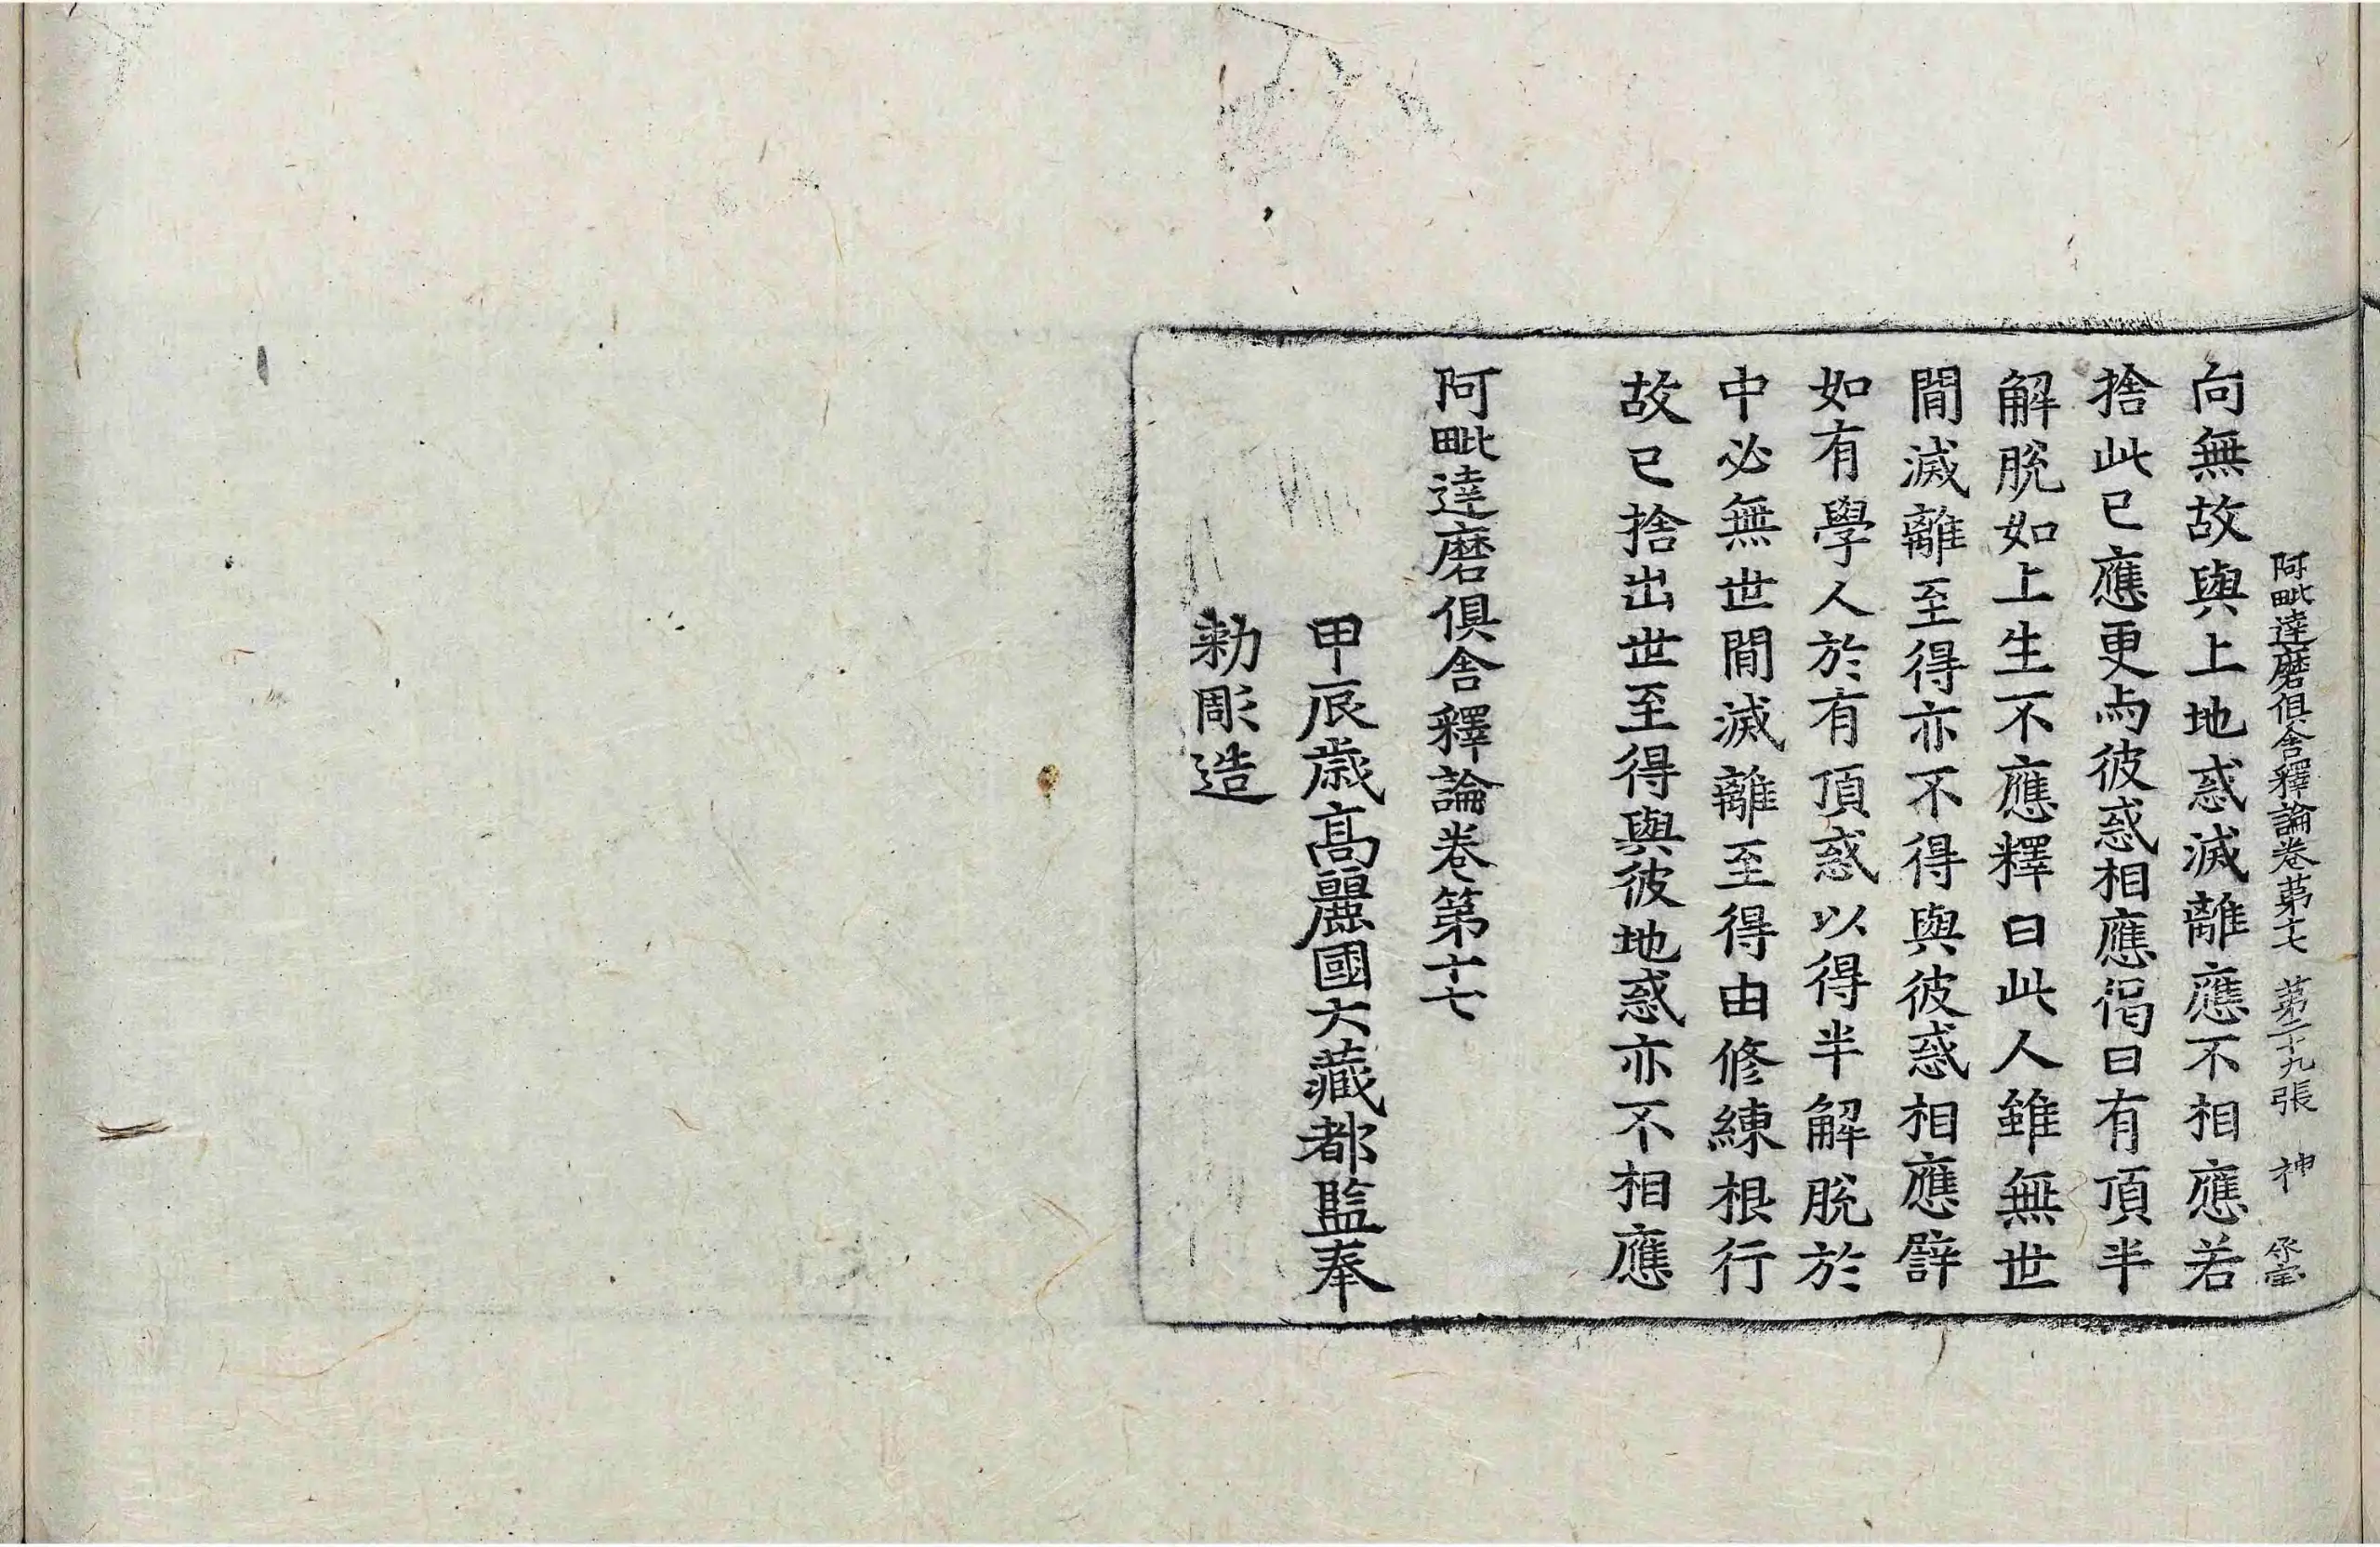 阿毗達磨俱舍釋論卷第十七 第二十九張 神
向無故與上地惑滅離應不相應若
捨此已應更與彼惑相應偈曰有頂半
解脫如上生不應釋曰此人雖無世
閒滅離至得亦不得與彼惑相應譬
如有學人於有頂惑以得半解脫於
中必無世閒滅離至得由修練根行
故已捨出世至得與彼地惑亦不相應
阿毗達磨俱舍釋論卷第十七
甲辰歲高麗國大藏都監奉
勅彫造